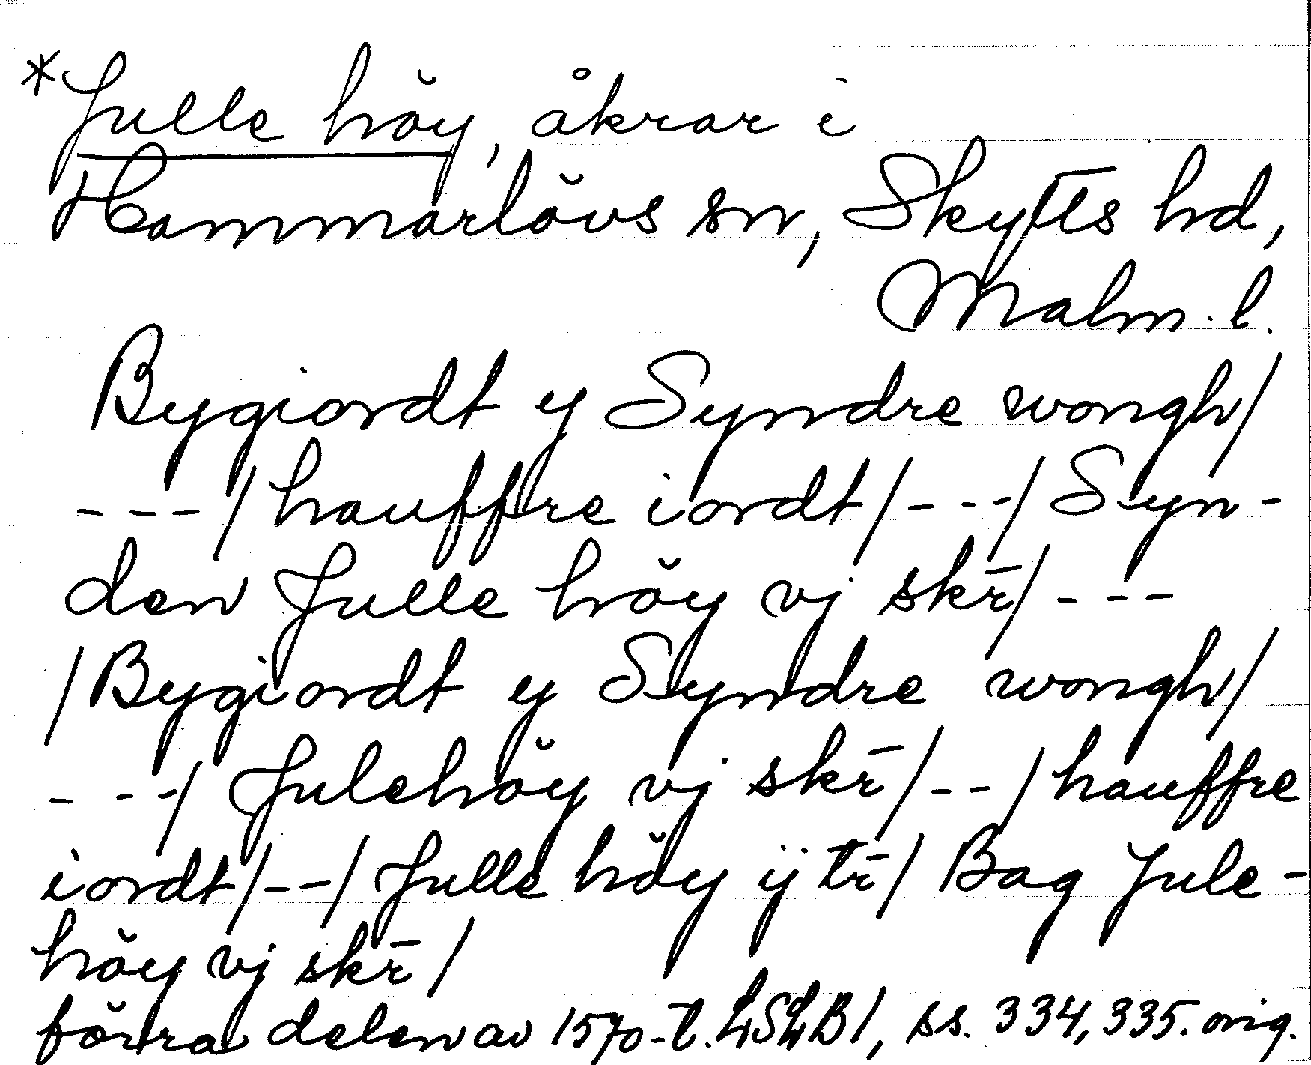 *Julle höy, åkrar i
Hammarlövs sn, Skytts hd,
Malm. l.
Bygiordt y Syndre wongh/
---/hauffre iordt/---/Syn-
den Julle höy vj skr̄/---
/Bygiordt y Syndre wongh/
---/Julehöy vj skr̄/--/hauffre
iordt/--/Julle höy ij tr̄/Bag Jule-
höy vj skr̄/
förra delen av 1570-t. LSLB1, ss. 334, 335. orig.